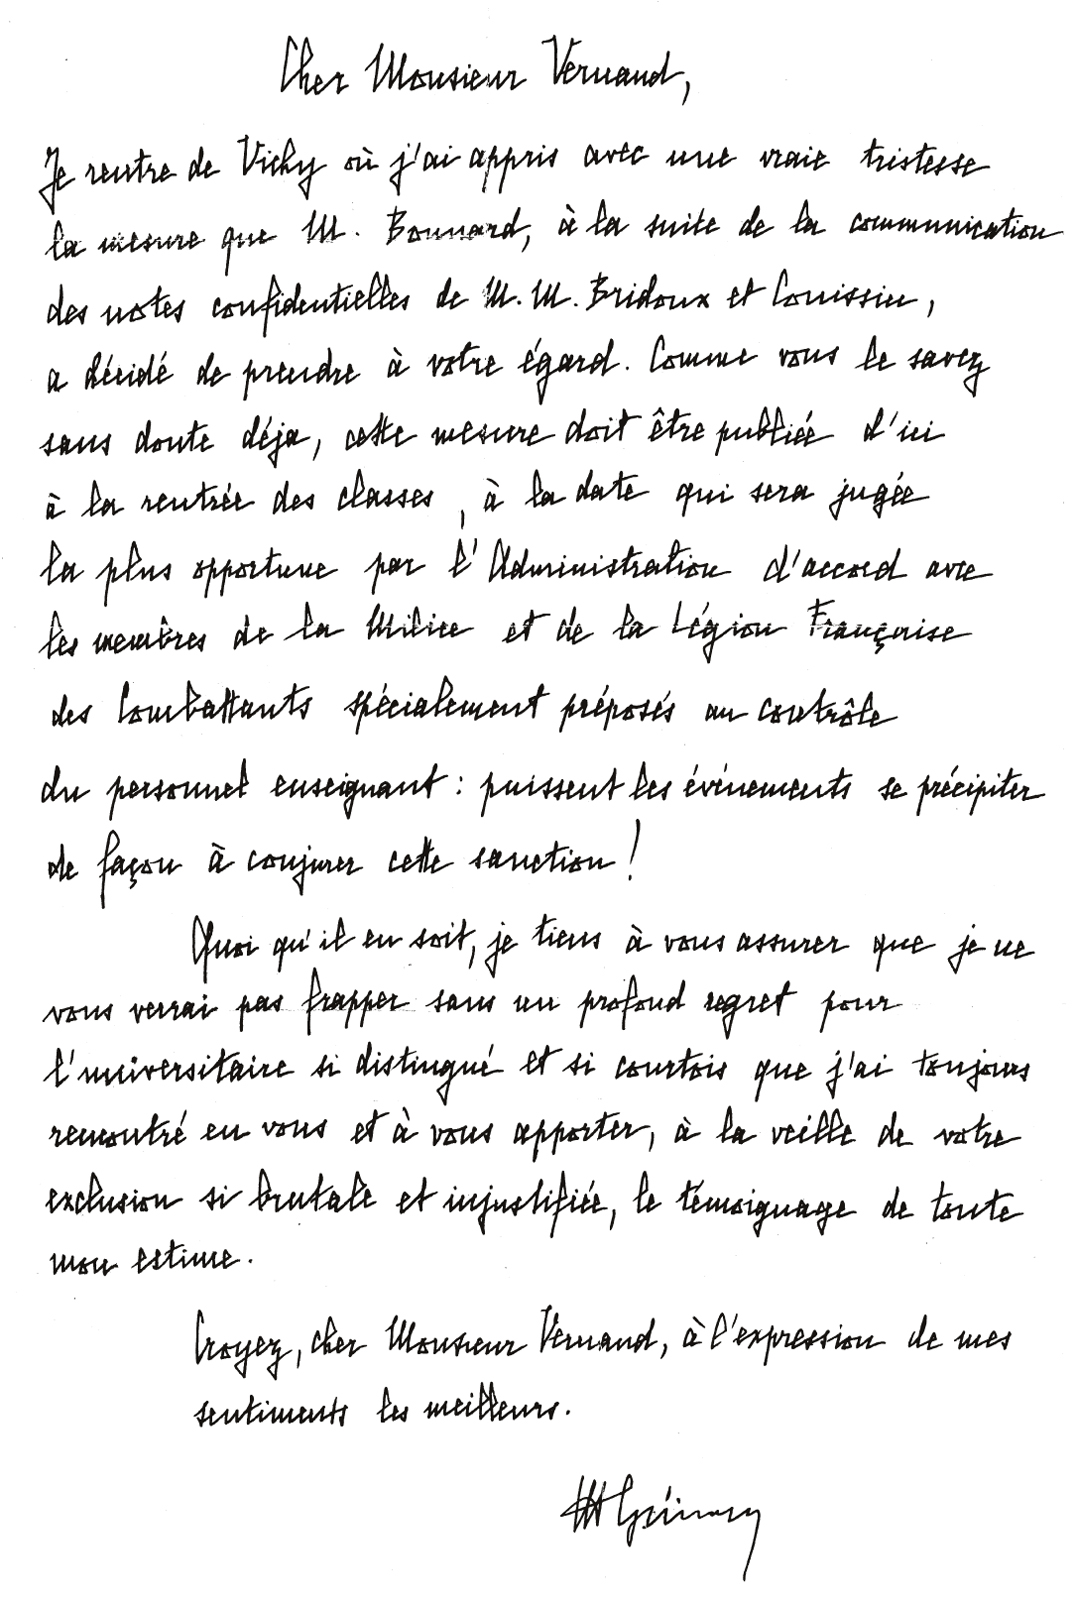 Cher Monsieur Vernaud,
Je rentre de Vichy où j'ai appris avec une vraie tristesse
la mesure que M. Bonnard, à la suite de la communication
des notes confidentielles de M. M. Bridoux et Couissin,
a décidé de prendre à votre égard. Comme vous le savez
sans doute déja, cette mesure doit être publiée d'ici
à la rentrée des classes, à la date qui sera jugée
la plus opportune par l'Administration d'accord avec
les membres de la Milice et de la Légion Française
des Combattants spécialement préposés au contrôle
du personnel enseignant : puissent les événements se précipiter
de façon à conjurer cette sanction !
Quoi qu'il en soit, je tiens à vous assurer que je ne
vous verrai pas frapper sans un profond regret pour
l'universitaire si distingué et si courtois que j'ai toujours
rencontré en vous et à vous apporter, à la veille de votre
exclusion si brutale et injustifiée, le témoignage de toute
mon estime.
Croyez, cher Monsieur Vernaud, à l'expression de mes
sentiments les meilleurs.